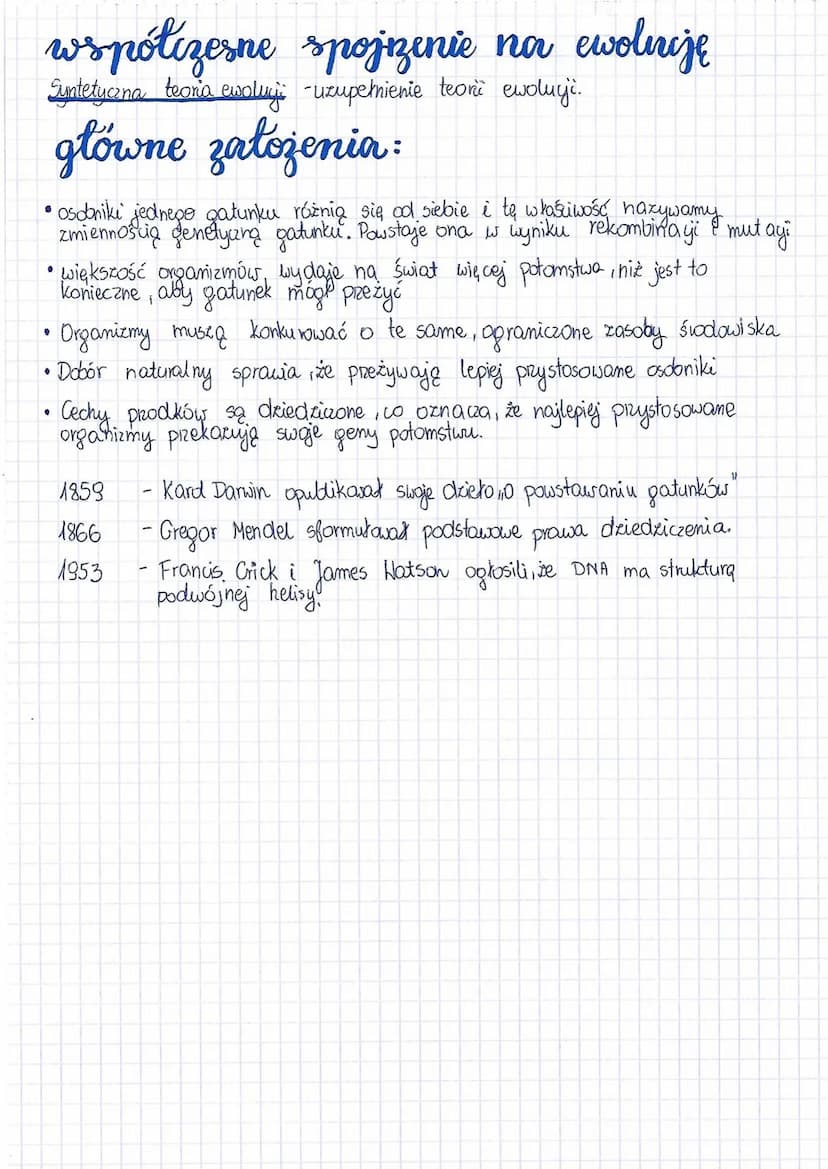 współczesne spojrzenie na ewolucję
Syntetyczna teoria ewolucji - uzupełnienie teorii ewolucji.
główne założenia:
• osobniki jednego gatunku różnią się od siebie i tę właściwość nazywamy
zmiennością genetyczną gatunku. Powstaje ona w wyniku rekombinacji i mutacji
• większość organizmów, wydaje na świat więcej potomstwa, niż jest to
konieczne, aby gatunek mógł przeżyć
• Organizmy muszą konkurować o te same, ograniczone zasoby środowiska
• Dobór naturalny sprawia, że przeżywają lepiej przystosowane osobniki
• Cechy przodków są dziedziczone, co oznacza, że najlepiej przystosowane
organizmy przekazują swoje geny potomstwu.
1859 - Karol Darwin opublikował swoje dzieło „O powstawaniu gatunków"
1866 - Gregor Mendel sformułował podstawowe prawa dziedziczenia.
1953 - Francis Crick i James Watson ogłosili, że DNA ma strukturę
podwójnej helisy.